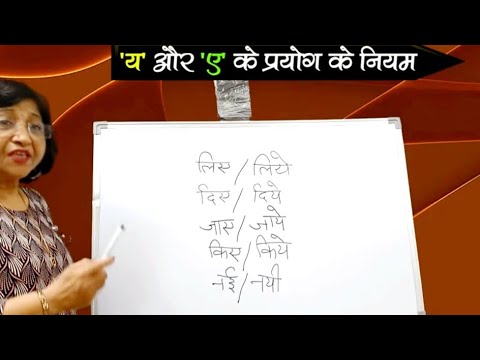 'य' और 'ए' के प्रयोग के नियम
लिए / लिये
दिए / दिये
जाए / जाये
किए / किये
नई / नयी